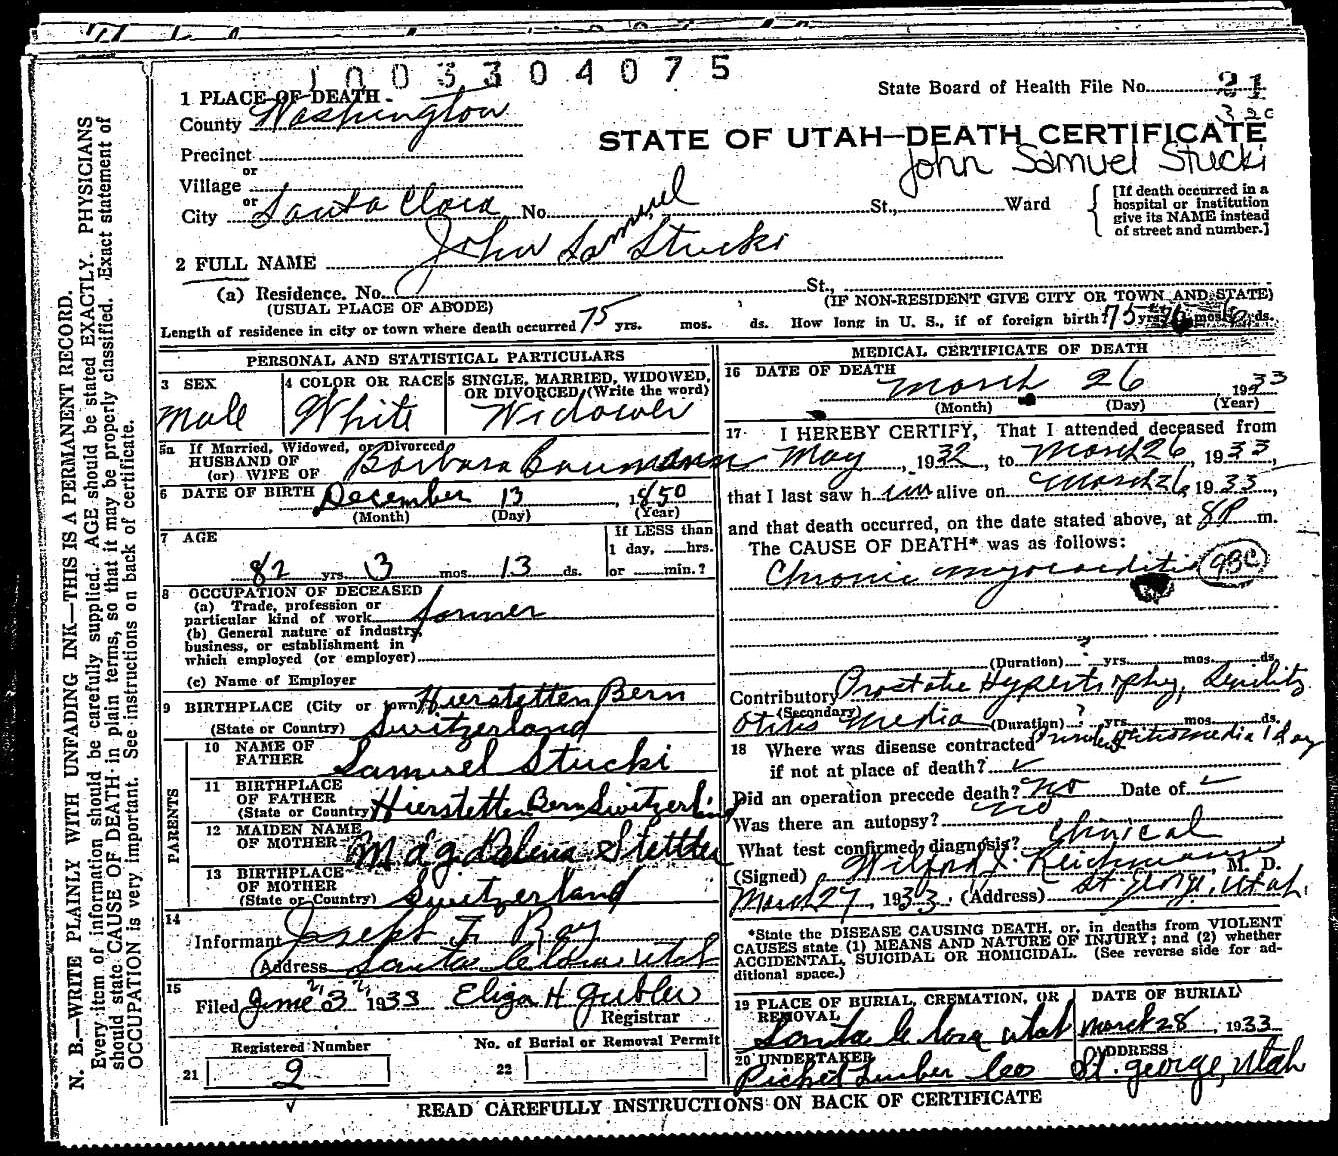 1003304075
State Board of Health File No. 21
32c
1 PLACE OF DEATH
County Washington
STATE OF UTAH—DEATH CERTIFICATE
John Samuel Stucki
Precinct
or
Village
or
City Santa Clara No. St., Ward
[If death occurred in a
hospital or institution
give its NAME instead
of street and number.]
2 FULL NAME John Samuel Stucki
(a) Residence. No. St.,
(USUAL PLACE OF ABODE) (IF NON-RESIDENT GIVE CITY OR TOWN AND STATE)
Length of residence in city or town where death occurred 75 yrs. mos. ds. How long in U. S., if of foreign birth? 75 yrs. mos. ds.
PERSONAL AND STATISTICAL PARTICULARS
3 SEX
Male
4 COLOR OR RACE
White
5 SINGLE, MARRIED, WIDOWED,
OR DIVORCED (Write the word)
Widower
5a If Married, Widowed, or Divorced
HUSBAND OF
(or) WIFE OF Barbara Baumann
6 DATE OF BIRTH December 13, 1850
(Month) (Day) (Year)
7 AGE
82 yrs. 3 mos. 13 ds.
If LESS than
1 day, hrs.
or min.?
8 OCCUPATION OF DECEASED
(a) Trade, profession or
particular kind of work farmer
(b) General nature of industry,
business, or establishment in
which employed (or employer)
(c) Name of Employer
9 BIRTHPLACE (City or town) Hierstetten Bern
(State or Country) Switzerland
PARENTS
10 NAME OF
FATHER Samuel Stucki
11 BIRTHPLACE
OF FATHER
(State or Country) Hierstetten Bern Switzerland
12 MAIDEN NAME
OF MOTHER Magdalena Stettler
13 BIRTHPLACE
OF MOTHER
(State or Country) Switzerland
14
Informant Joseph F. Ray
(Address Santa Clara Utah
15
Filed June 3 1933 Eliza H Gubler
Registrar
Registered Number
21 2
No. of Burial or Removal Permit
22
MEDICAL CERTIFICATE OF DEATH
16 DATE OF DEATH
March 26 1933
(Month) (Day) (Year)
17 I HEREBY CERTIFY, That I attended deceased from
May, 1932, to March 26, 1933,
that I last saw him alive on March 26, 1933,
and that death occurred, on the date stated above, at 8 P. m.
The CAUSE OF DEATH* was as follows:
Chronic myocarditis 93c
(Duration) ? yrs. mos. ds.
Contributory Prostatic Hypertrophy, Senility
(Secondary)
Otitis Media (Duration) ? yrs. mos. ds.
18 Where was disease contracted
if not at place of death?
Did an operation precede death? no Date of
Was there an autopsy? no
What test confirmed diagnosis? Clinical
(Signed) Wilford J. Reichmann, M. D.
March 27, 1933. (Address) St George, Utah.
*State the DISEASE CAUSING DEATH, or, in deaths from VIOLENT
CAUSES state (1) MEANS AND NATURE OF INJURY; and (2) whether
ACCIDENTAL, SUICIDAL OR HOMICIDAL. (See reverse side for ad-
ditional space.)
19 PLACE OF BURIAL, CREMATION, OR
REMOVAL
Santa Clara Utah
DATE OF BURIAL
March 28, 1933
20 UNDERTAKER
Picket Lumber Co
ADDRESS
St. George, Utah
READ CAREFULLY INSTRUCTIONS ON BACK OF CERTIFICATE
N. B.—WRITE PLAINLY WITH UNFADING INK—THIS IS A PERMANENT RECORD.
Every item of information should be carefully supplied. AGE should be stated EXACTLY. PHYSICIANS
should state CAUSE OF DEATH in plain terms, so that it may be properly classified. Exact statement of
OCCUPATION is very important. See instructions on back of certificate.